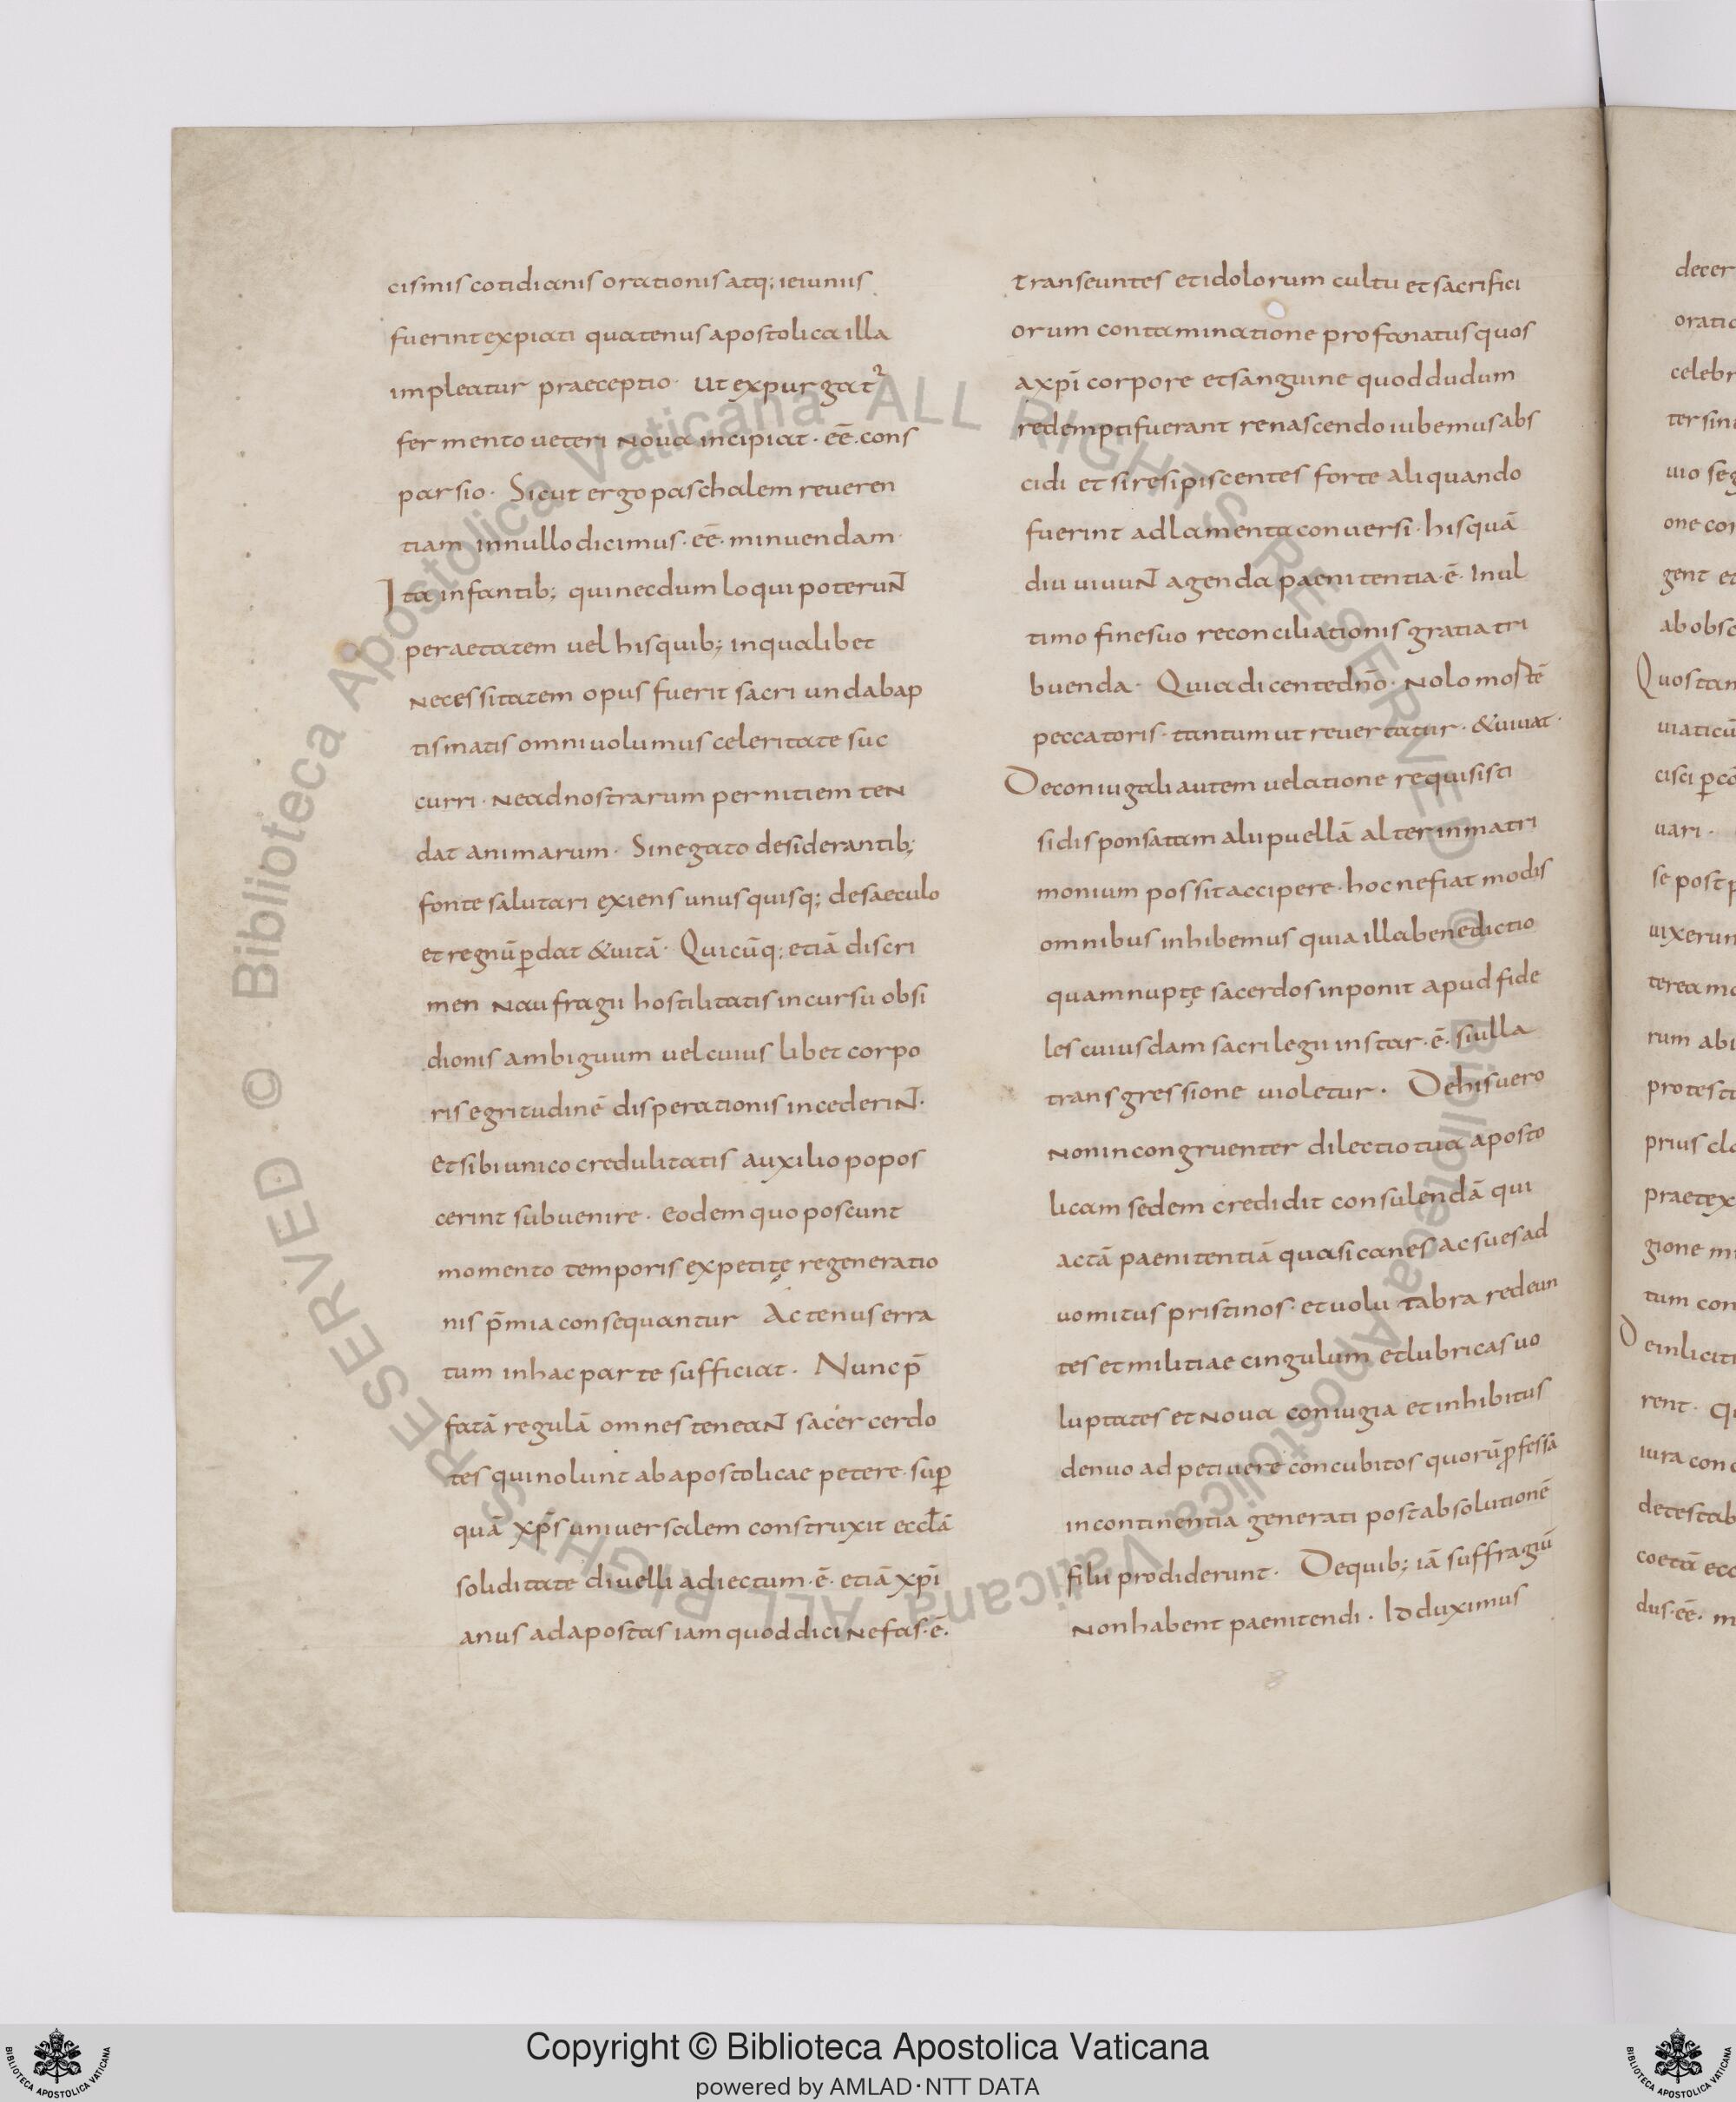 cismis cotidianis orationis atq; ieiuniis
fuerint expiati quatenus apostolica illa
impleatur praeceptio · Ut expurgat᷑
fermento ueteri noua incipiat · eē · cons
parsio · Sicut ergo paschalem reueren
tiam in nullo dicimus · eē · minuendam ·
Ita infantib; qui necdum loqui poterunt
per aetatem uel his quib; in qualibet
necessitatem opus fuerit sacri unda bap
tismatis omni uolumus celeritate suc
curri · ne ad nostrarum pernitiem ten
dat animarum · Si negato desiderantib;
fonte salutari exiens unusquisq; de saeculo
et regnū ꝑdat & uitā · Quicūq; etiā discri
men naufragii hostilitatis incursu obsi
dionis ambiguum uel cuiuslibet corpo
ris egritudinē disperationis incederint ·
et sibi unico credulitatis auxilio popos
cerint subuenire · eodem quo poscunt
momento temporis expetitę regeneratio
nis p̄mia consequantur Actenus erra
tum in hac parte sufficiat · Nunc p̄
fatā regulā omnes teneant sacer cerdo
tes qui nolunt ab apostolicae petere · suꝑ
quā xp̄s uniuersalem construxit eccłā
soliditate diuelli adiectum · ē · etiā xp̄i
anus ad apostas iam quod dici nefas · ē ·
transeuntes et idolorum cultu et sacrifici
orum contaminatione profanatus quos
a xp̄i corpore et sanguine quod dudum
redempti fuerant renascendo iubemus abs
cidi et si resipiscentes forte aliquando
fuerint ad lamenta conuersi · his quā
diu uiuunt agenda paenitentia · ē · In ul
timo fine suo reconciliationis gratia tri
buenda · Quia dicente dn̄o · nolo mortē
peccatoris · tantum ut reuertatur · & uiuat ·
De coniugali autem uelatione requisisti
si disponsatam alii puellā alter in matri
monium possit accipere · hoc ne fiat modis
omnibus inhibemus quia illa benedictio
quam nuptę sacerdos inponit apud fide
les cuiusdam sacrilegii instar · ē · si ulla
transgressione uioletur · De his uero
non incongruenter dilectio tua aposto
licam sedem credidit consulendā qui
actā paenitentiā quasi canes ac sues ad
uomitus pristinos · et uolutabra redeun
tes et militiae cingulum et lubricas uo
luptates et noua coniugia et inhibitus
denuo adpetiuere concubitos quorū ꝓfessā
incontinentia generati post absolutionē
filii prodiderunt · De quib; iā suffragiū
non habent paenitendi · Id duximus
decer
oratio
celebr
ter sin
uio seg
one co
gent et
ab obs
Quos tan
uiaticū
cisci ꝑ cō
uari ·
se post p
uixerun
terea m
rum abi
protesti
prius cl
praetex
gione m
tum con
De inlicit
rent · q
iura con
detestab
coetā ecc
dus · eē · m
© Biblioteca Apostolica Vaticana ALL RIGHTS RESERVED © Biblioteca Apostolica Vaticana ALL RIGHTS RESERVED
Copyright © Biblioteca Apostolica Vaticana
powered by AMLAD・NTT DATA
BIBLIOTECA APOSTOLICA VATICANA
BIBLIOTECA APOSTOLICA VATICANA